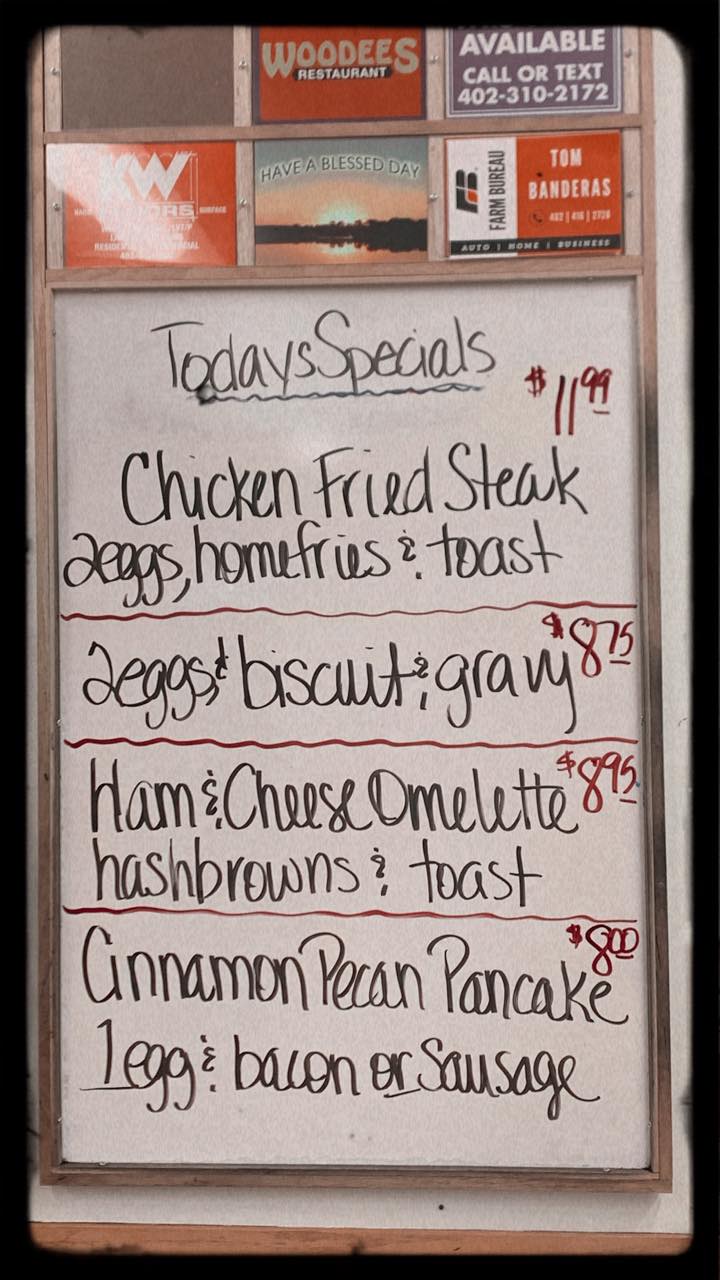 WOODEES
RESTAURANT
AVAILABLE
CALL OR TEXT
402-310-2172
KW
HAVE A BLESSED DAY
FARM BUREAU
TOM
BANDERAS
AUTO | HOME | BUSINESS
Todays Specials
$11.99
Chicken Fried Steak
2eggs, homefries & toast
$8.75
2eggs, & biscuit & gravy
$8.95
Ham & Cheese Omelette
hashbrowns & toast
$8.00
Cinnamon Pecan Pancake
1 egg & bacon or Sausage